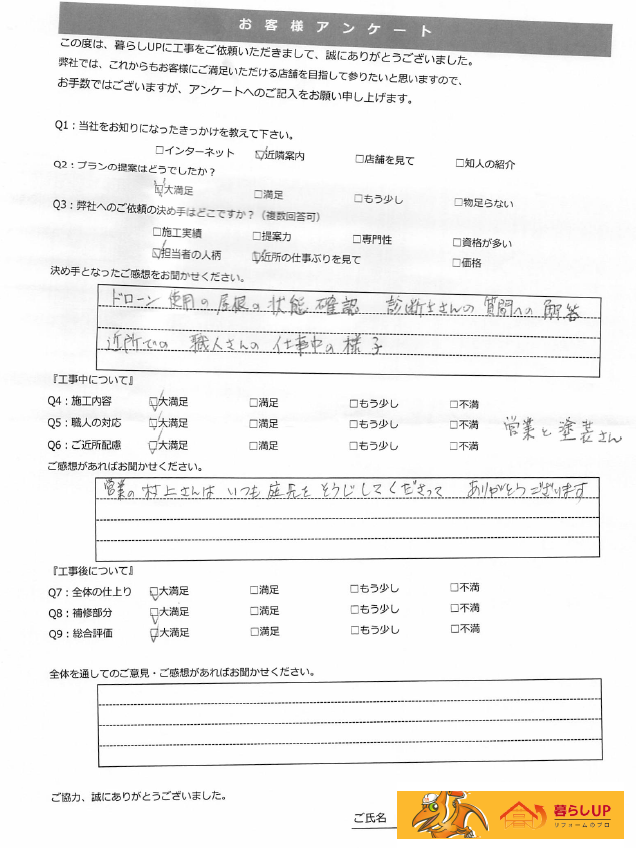 お客様アンケート
この度は、暮らしUPに工事をご依頼いただきまして、誠にありがとうございました。
弊社では、これからもお客様にご満足いただける店舗を目指して参りたいと思いますので、
お手数ではございますが、アンケートへのご記入をお願い申し上げます。
Q1：当社をお知りになったきっかけを教えて下さい。
□インターネット □近隣案内 □店舗を見て □知人の紹介
Q2：プランの提案はどうでしたか？
□大満足 □満足 □もう少し □物足らない
Q3：弊社へのご依頼の決め手はどこですか？（複数回答可）
□施工実績 □提案力 □専門性 □資格が多い
□担当者の人柄 □近所の仕事ぶりを見て □価格
決め手となったご感想をお聞かせください。
ドローン使用の屋根の状態確認 診断士さんの質問への解答
近所での 職人さんの仕事中の様子
『工事中について』
Q4：施工内容 □大満足 □満足 □もう少し □不満
Q5：職人の対応 □大満足 □満足 □もう少し □不満 営業と塗装さん
Q6：ご近所配慮 □大満足 □満足 □もう少し □不満
ご感想があればお聞かせください。
営業の村上さんはいつも庭先をそうじしてくださって ありがとうございます
『工事後について』
Q7：全体の仕上り □大満足 □満足 □もう少し □不満
Q8：補修部分 □大満足 □満足 □もう少し □不満
Q9：総合評価 □大満足 □満足 □もう少し □不満
全体を通してのご意見・ご感想があればお聞かせください。
ご協力、誠にありがとうございました。
ご氏名
暮らしUP
リフォームのプロ